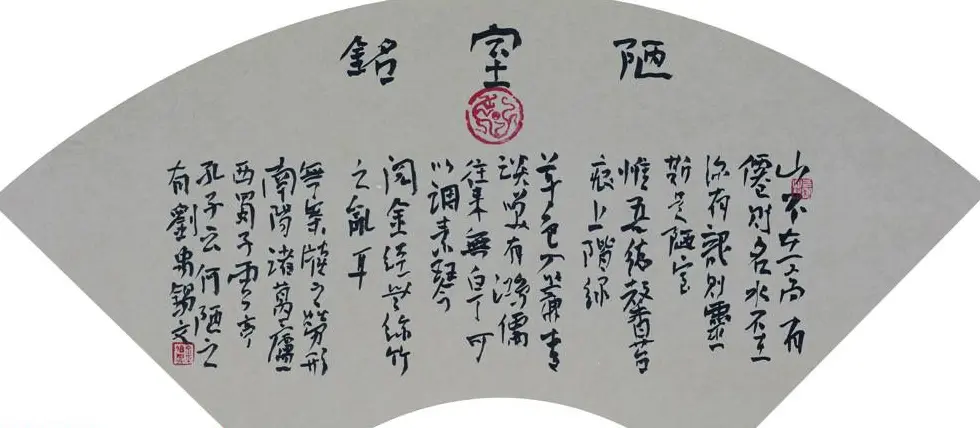 陋室銘
山不在高有
僊則名水不在
深有龍則靈
斯是陋室
惟吾德馨苔
痕上階綠
草色入簾青
談笑有鴻儒
往来無白丁可
以調素琴
閱金經無絲竹
之亂耳
無案牘之勞形
南陽諸葛廬
西蜀子雲亭
孔子云何陋之
有劉禹錫文